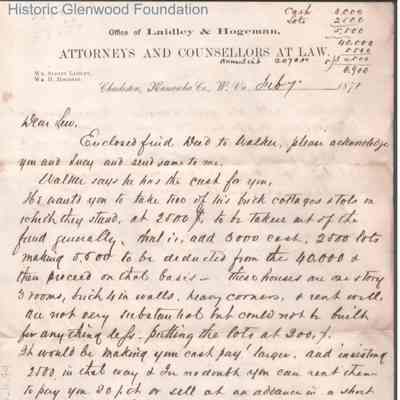 Historic Glenwood Foundation
Cash 3,000
Lots 2500
5,500
40,000
5,500
Office of Laidley & Hogeman,
ATTORNEYS AND COUNSELLORS AT LAW,
Wm. Sidney Laidley,
Wm. H. Hogeman.
Charleston, Kanawha Co., W. Va. Feby 187
Dear Lew.
Enclosed find Deed to Walker, please acknowledge
you and Lucy and send same to me.
Walker says he has the cash for you,
He wants you to take two of his brick cottages & lots on
which they stand, at 2500 $, to be taken out of the
fund generally, that is, add 3000 cash, 2500 lots
making 5,500 to be deducted from the 40,000 &
then proceed on that basis — these houses are one story
3 rooms, brick 4 in walls, heavy corners, & rent well
are not very substantial but could not be built
for any thing less. putting the lots at 200. $.
It would be making your cash pay't larger, and investing
2500, in that way & I've no doubt you can rent them
to pay you 20 p ct or sell at an advance in a short